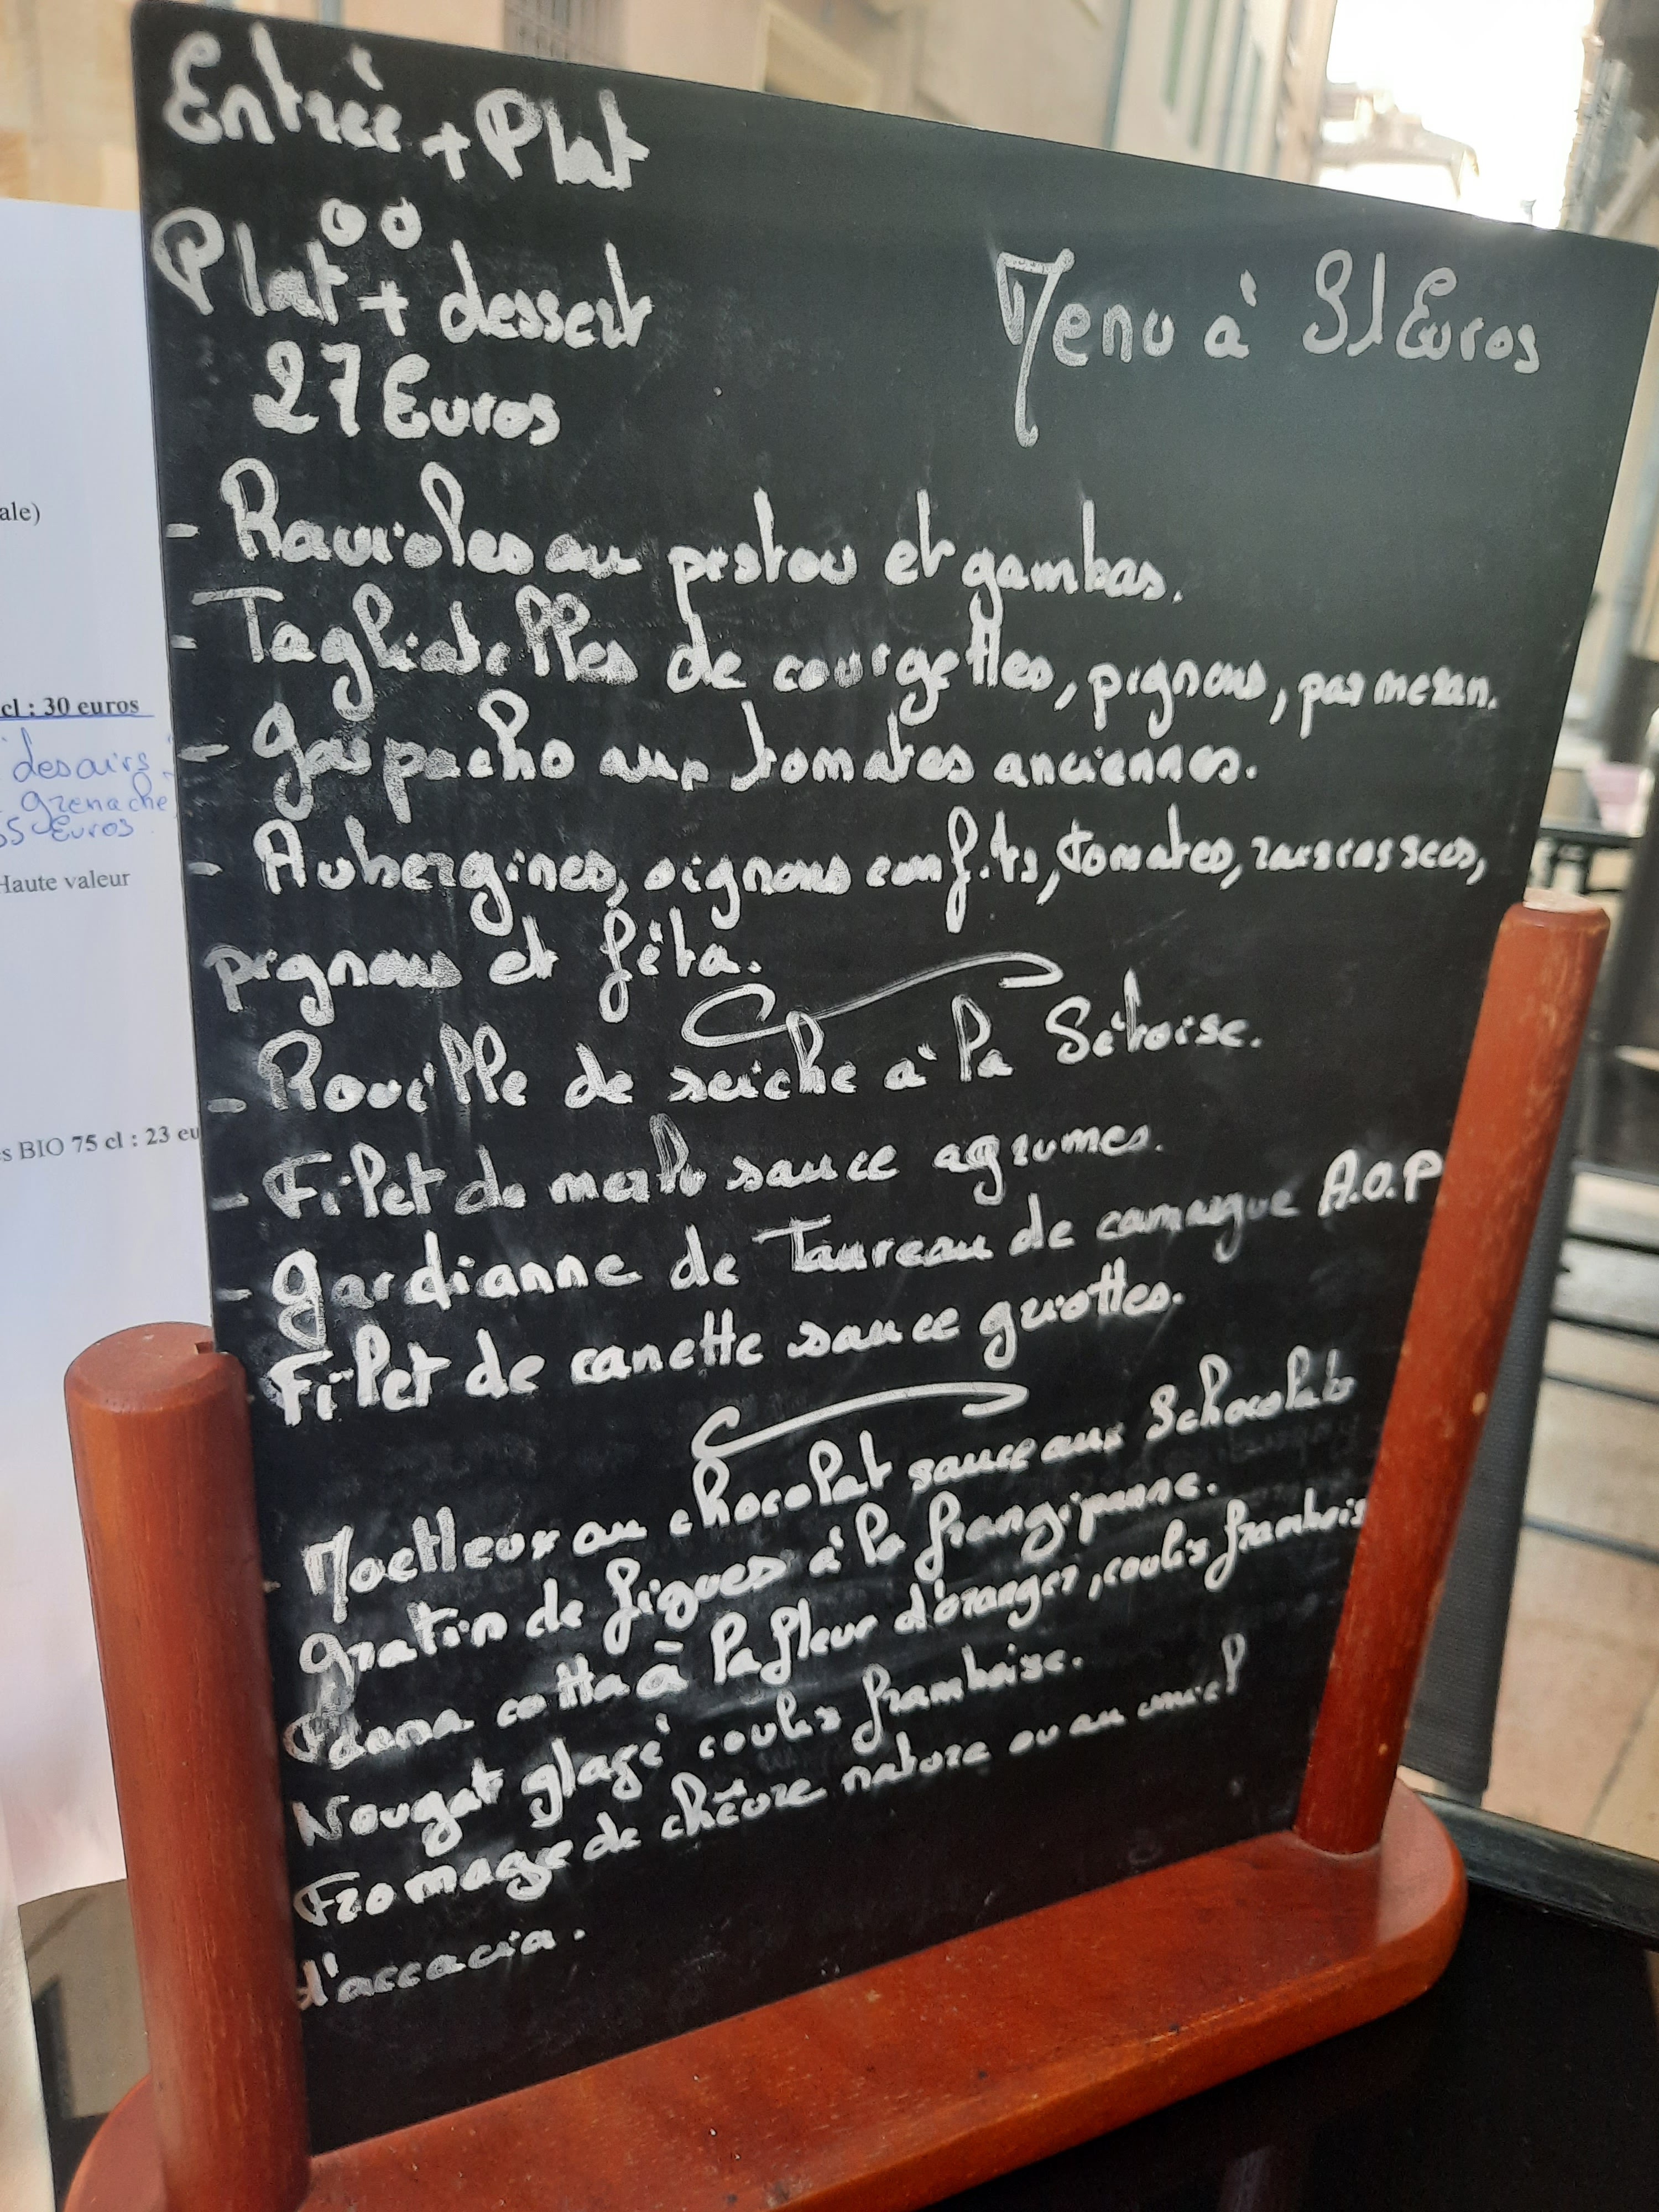 Entrée + Plat
oo
Plat + dessert
27 Euros
Menu à 31 Euros
- Ravioles au pistou et gambas.
- Tagliatelles de courgettes, pignons, parmesan.
- Gaspacho aux tomates anciennes.
- Aubergines, oignons confits, tomates, raisins secs,
pignons et féta.
- Rouille de seiche à la Sètoise.
- Filet de merlu sauce agrumes.
- Gardianne de Taureau de camargue A.O.P
Filet de canette sauce griottes.
- Moelleux au chocolat sauce aux 3 chocolats
Gratin de figues à la frangipanne.
Panna cotta à la fleur d'oranger, coulis frambois
Nougat glacé coulis framboise.
Fromage de chèvre nature ou au miel
d'accacia.
ale)
cl : 30 euros
desairs
grenache
Euros
Haute valeur
s BIO 75 cl : 23 eu